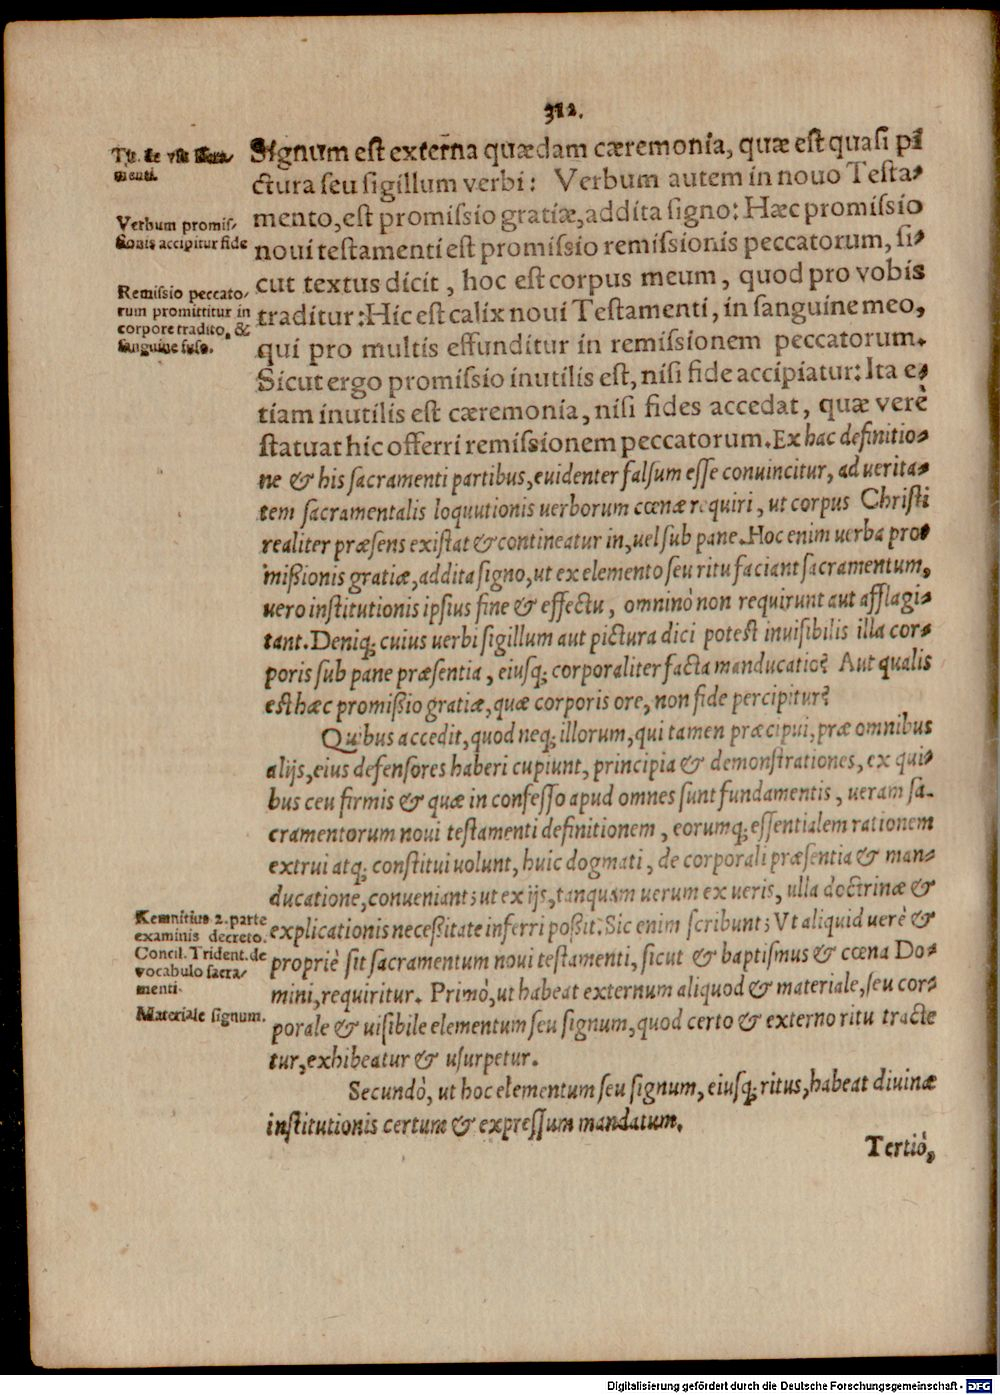 312.
Tit. de vsu Sacra-
menti.
Signum est externa quædam cæremonia, quæ est quasi pi
ctura seu sigillum verbi: Verbum autem in nouo Testa-
Verbum promis-
sionis accipitur fide
mento, est promissio gratiæ, addita signo: Hæc promissio
noui testamenti est promissio remissionis peccatorum, si-
Remissio peccato-
rum promittitur in
corpore tradito, &
sanguine fuso.
cut textus dicit, hoc est corpus meum, quod pro vobis
traditur: Hic est calix noui Testamenti, in sanguine meo,
qui pro multis effunditur in remissionem peccatorum.
Sicut ergo promissio inutilis est, nisi fide accipiatur: Ita e-
tiam inutilis est cæremonia, nisi fides accedat, quæ verè
statuat hic offerri remissionem peccatorum. Ex hac definitio-
ne & his sacramenti partibus, euidenter falsum esse conuincitur, ad uerita-
tem sacramentalis loquutionis uerborum cœnæ requiri, ut corpus Christi
realiter præsens existat & contineatur in, uel sub pane. Hoc enim uerba pro-
mißionis gratiæ, addita signo, ut ex elemento seu ritu faciant sacramentum,
uero institutionis ipsius fine & effectu, omninò non requirunt aut afflagi-
tant. Deniq; cuius uerbi sigillum aut pictura dici potest inuisibilis illa cor-
poris sub pane præsentia, eiusq; corporaliter facta manducatio? Aut qualis
est hæc promißio gratiæ, quæ corporis ore, non fide percipitur?
Quibus accedit, quod neq; illorum, qui tamen præcipui, præ omnibus
alijs, eius defensores haberi cupiunt, principia & demonstrationes, ex qui-
bus ceu firmis & quæ in confesso apud omnes sunt fundamentis, ueram sa-
cramentorum noui testamenti definitionem, eorumq; essentialem rationem
extrui atq; constitui uolunt, huic dogmati, de corporali præsentia & man-
ducatione, conueniant; ut ex ijs, tanquam uerum ex ueris, ulla doctrinæ &
Kemnitius 2. parte
examinis decreto.
Concil. Trident. de
vocabulo sacra-
menti.
explicationis neceßitate inferri poßit. Sic enim scribunt; Vt aliquid uerè &
propriè sit sacramentum noui testamenti, sicut & baptismus & cœna Do-
mini, requiritur. Primò, ut habeat externum aliquod & materiale, seu cor-
Materiale signum.
porale & uisibile elementum seu signum, quod certo & externo ritu tracte
tur, exhibeatur & usurpetur.
Secundò, ut hoc elementum seu signum, eiusq; ritus, habeat diuinæ
institutionis certum & expressum mandatum.
Tertiò,
Digitalisierung gefördert durch die Deutsche Forschungsgemeinschaft - DFG